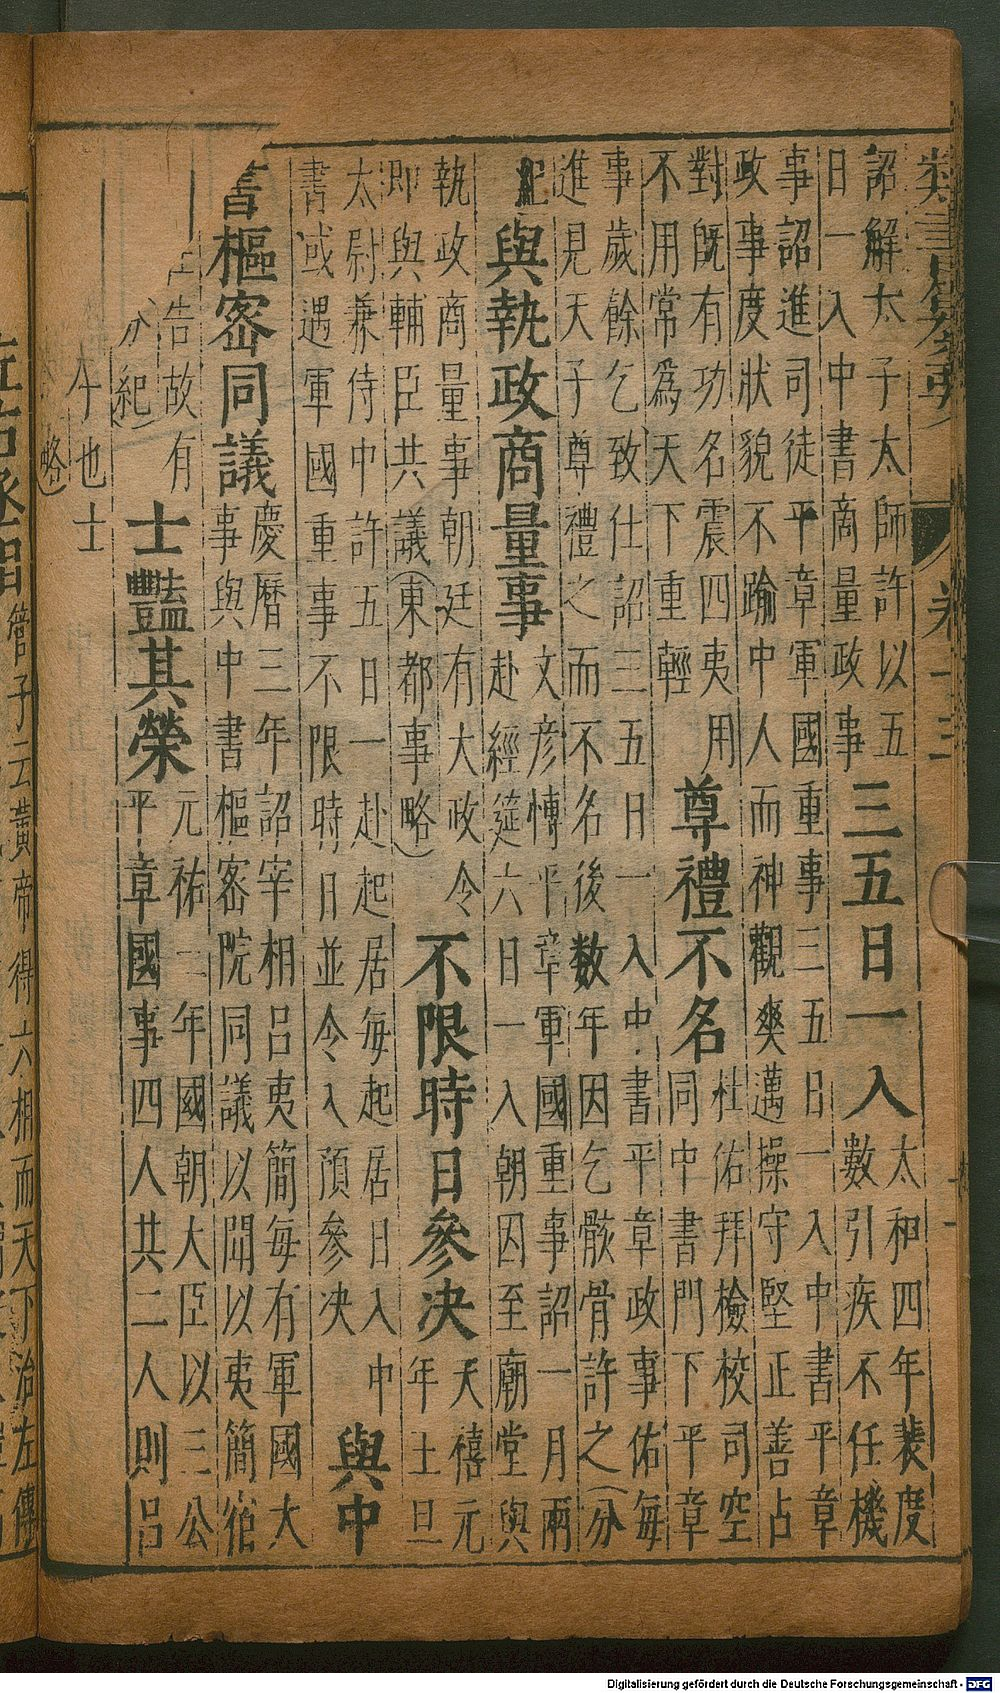 卷十三
詔解太子太師許以五
日一入中書商量政事
三五日一入
太和四年裴度
數引疾不任機
事詔進司徒平章軍國重事三五日一入中書平章
政事度狀貌不踰中人而神觀爽邁操守堅正善占
對既有功名震四夷用
不用常爲天下重輕
尊禮不名
杜佑拜檢校司空
同中書門下平章
事歲餘乞致仕詔三五日一入中書平章政事佑每
進見天子尊禮之而不名後数年因乞骸骨許之(分
紀
與執政商量事
文彦博平章軍國重事詔一月兩
赴經筵六日一入朝因至廟堂與
執政商量事朝廷有大政令
即與輔臣共議(東都事略)
不限時日參决
天禧元
年王旦
太尉兼侍中許五日一赴起居每起居日入中
書或遇軍國重事不限時日並令入預參决
與中
書樞密同議
慶曆三年詔宰相呂夷簡每有軍國大
事與中書樞密院同議以聞以夷簡宿
告故有
分紀)
士豔其榮
元祐二年國朝大臣以三公
平章國事四人共二人則呂
也士
略)
管子云黃帝得六相而天下治左傳
Digitalisierung gefördert durch die Deutsche Forschungsgemeinschaft - DFG